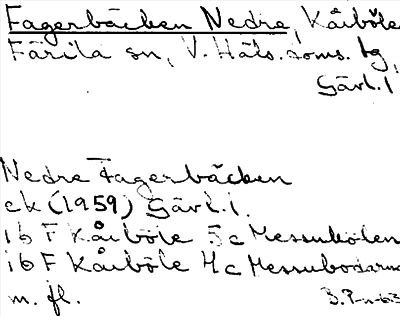 Fagerbäcken Nedre, Kåiböle
Färila sn, V. Häls. doms. tg,
Gävl. l
Nedre Fagerbäcken
ek (1959) Gävl. l.
16 F Kåiböle 5c Messukölen
16 F Kåiböle 4c Messubodarna
m. fl.